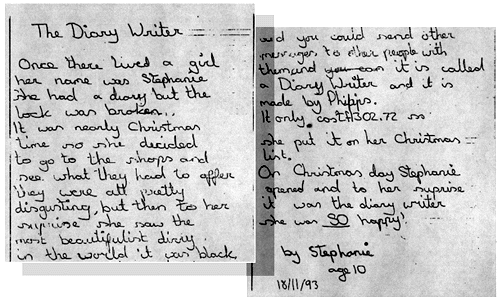 The Diary Writer
Once there lived a girl
her name was Stephanie
she had a diary but the
lock was broken..
It was nearly Christmas
time so she decided
to go to the shops and
see what they had to offer
they were all pretty
disgusting, but then to her
suprise she saw the
most beautifulist diary
in the world it was black
and you could send other
messages to other people with
them and you can it is called
a Diary Writer and it is
made by Philips.
It only cost £302.72 so
she put it on her Christmas
list.
On Christmas day Stephanie
opened and to her suprise
it was the diary writer
she was SO happy!
by Stephanie
age 10
18/11/93